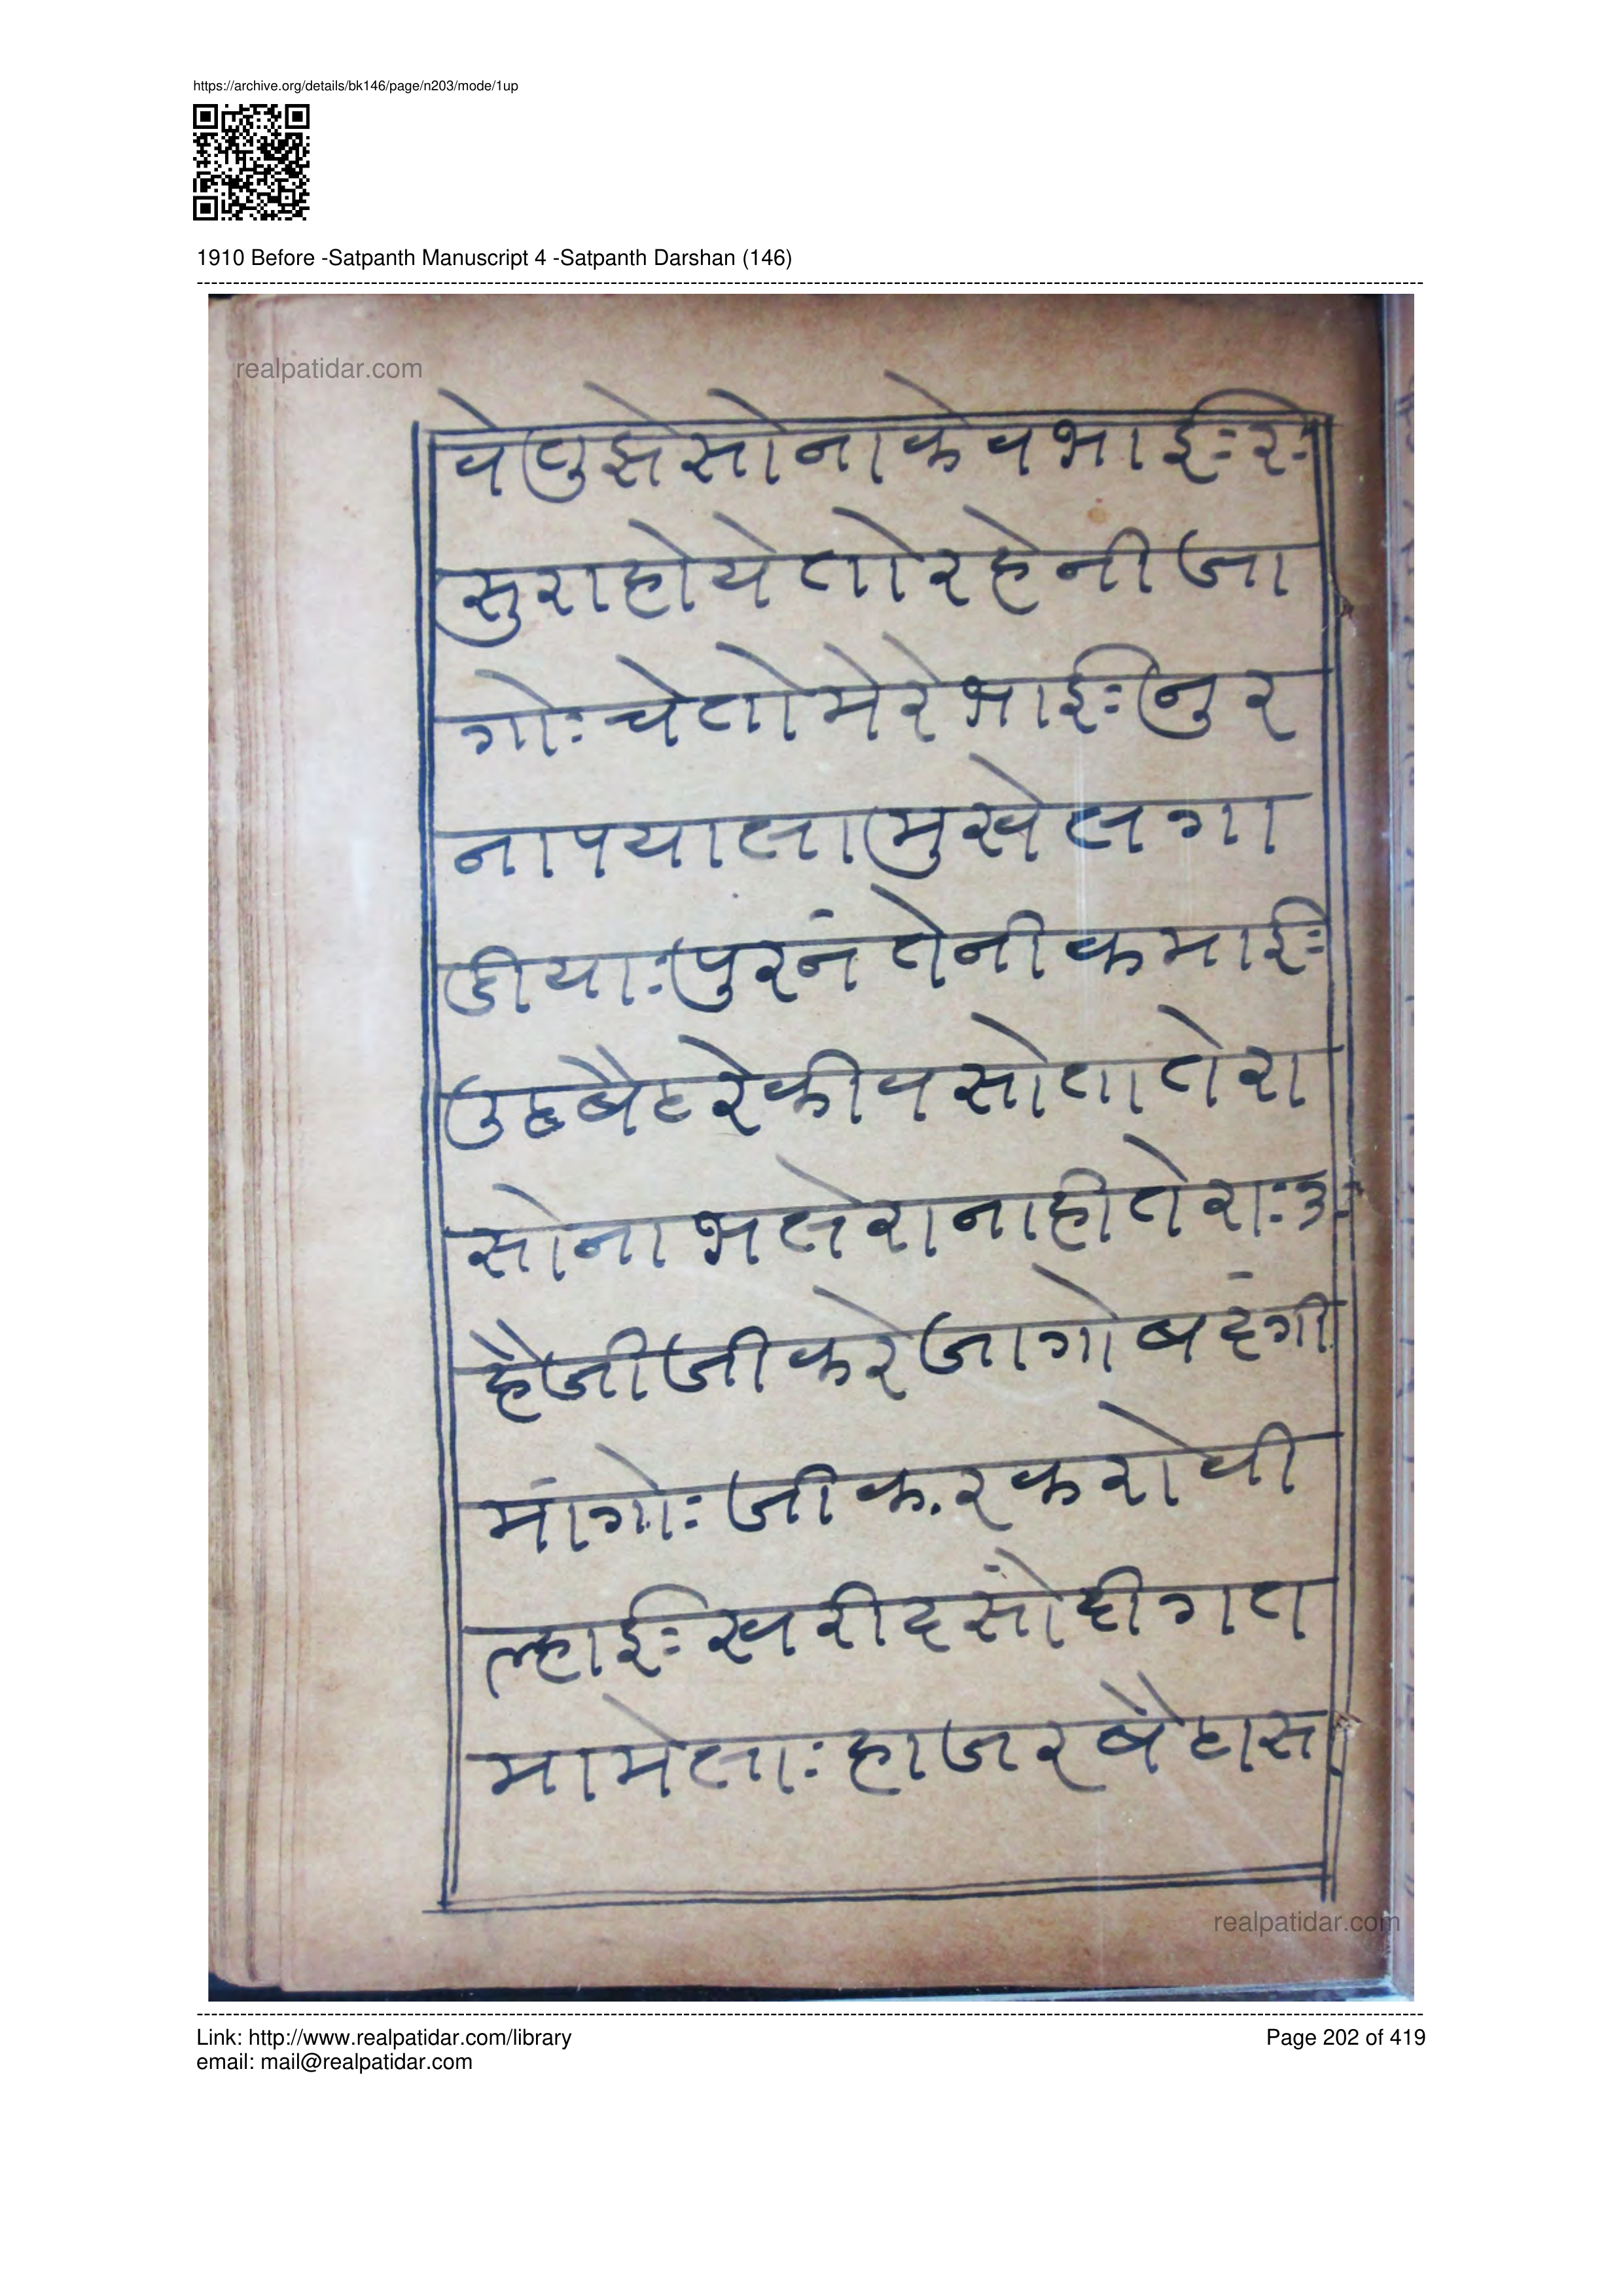 https://archive.org/details/bk146/page/n203/mode/1up
1910 Before -Satpanth Manuscript 4 -Satpanth Darshan (146)
realpatidar.com
सोनाकेवभाईः२ः
सुराहोयेतोरहेनीजा
गोःचेतोमेरेभाईःनुर
नापयालामुखेलगा
डीयाःपुरनंतेनीकमाईः
उठबैठरेकीवसोतातेरा
सोनाभलेरानाहीतेराः३ः
हैजीजीकरेजागोबदंगी
मांगोःजीकरकरोवी
ल्हाईःखरीदसोंहीगत
मामेलाःहाजरबैठास
realpatidar.com
Link: http://www.realpatidar.com/library
Page 202 of 419
email: mail@realpatidar.com